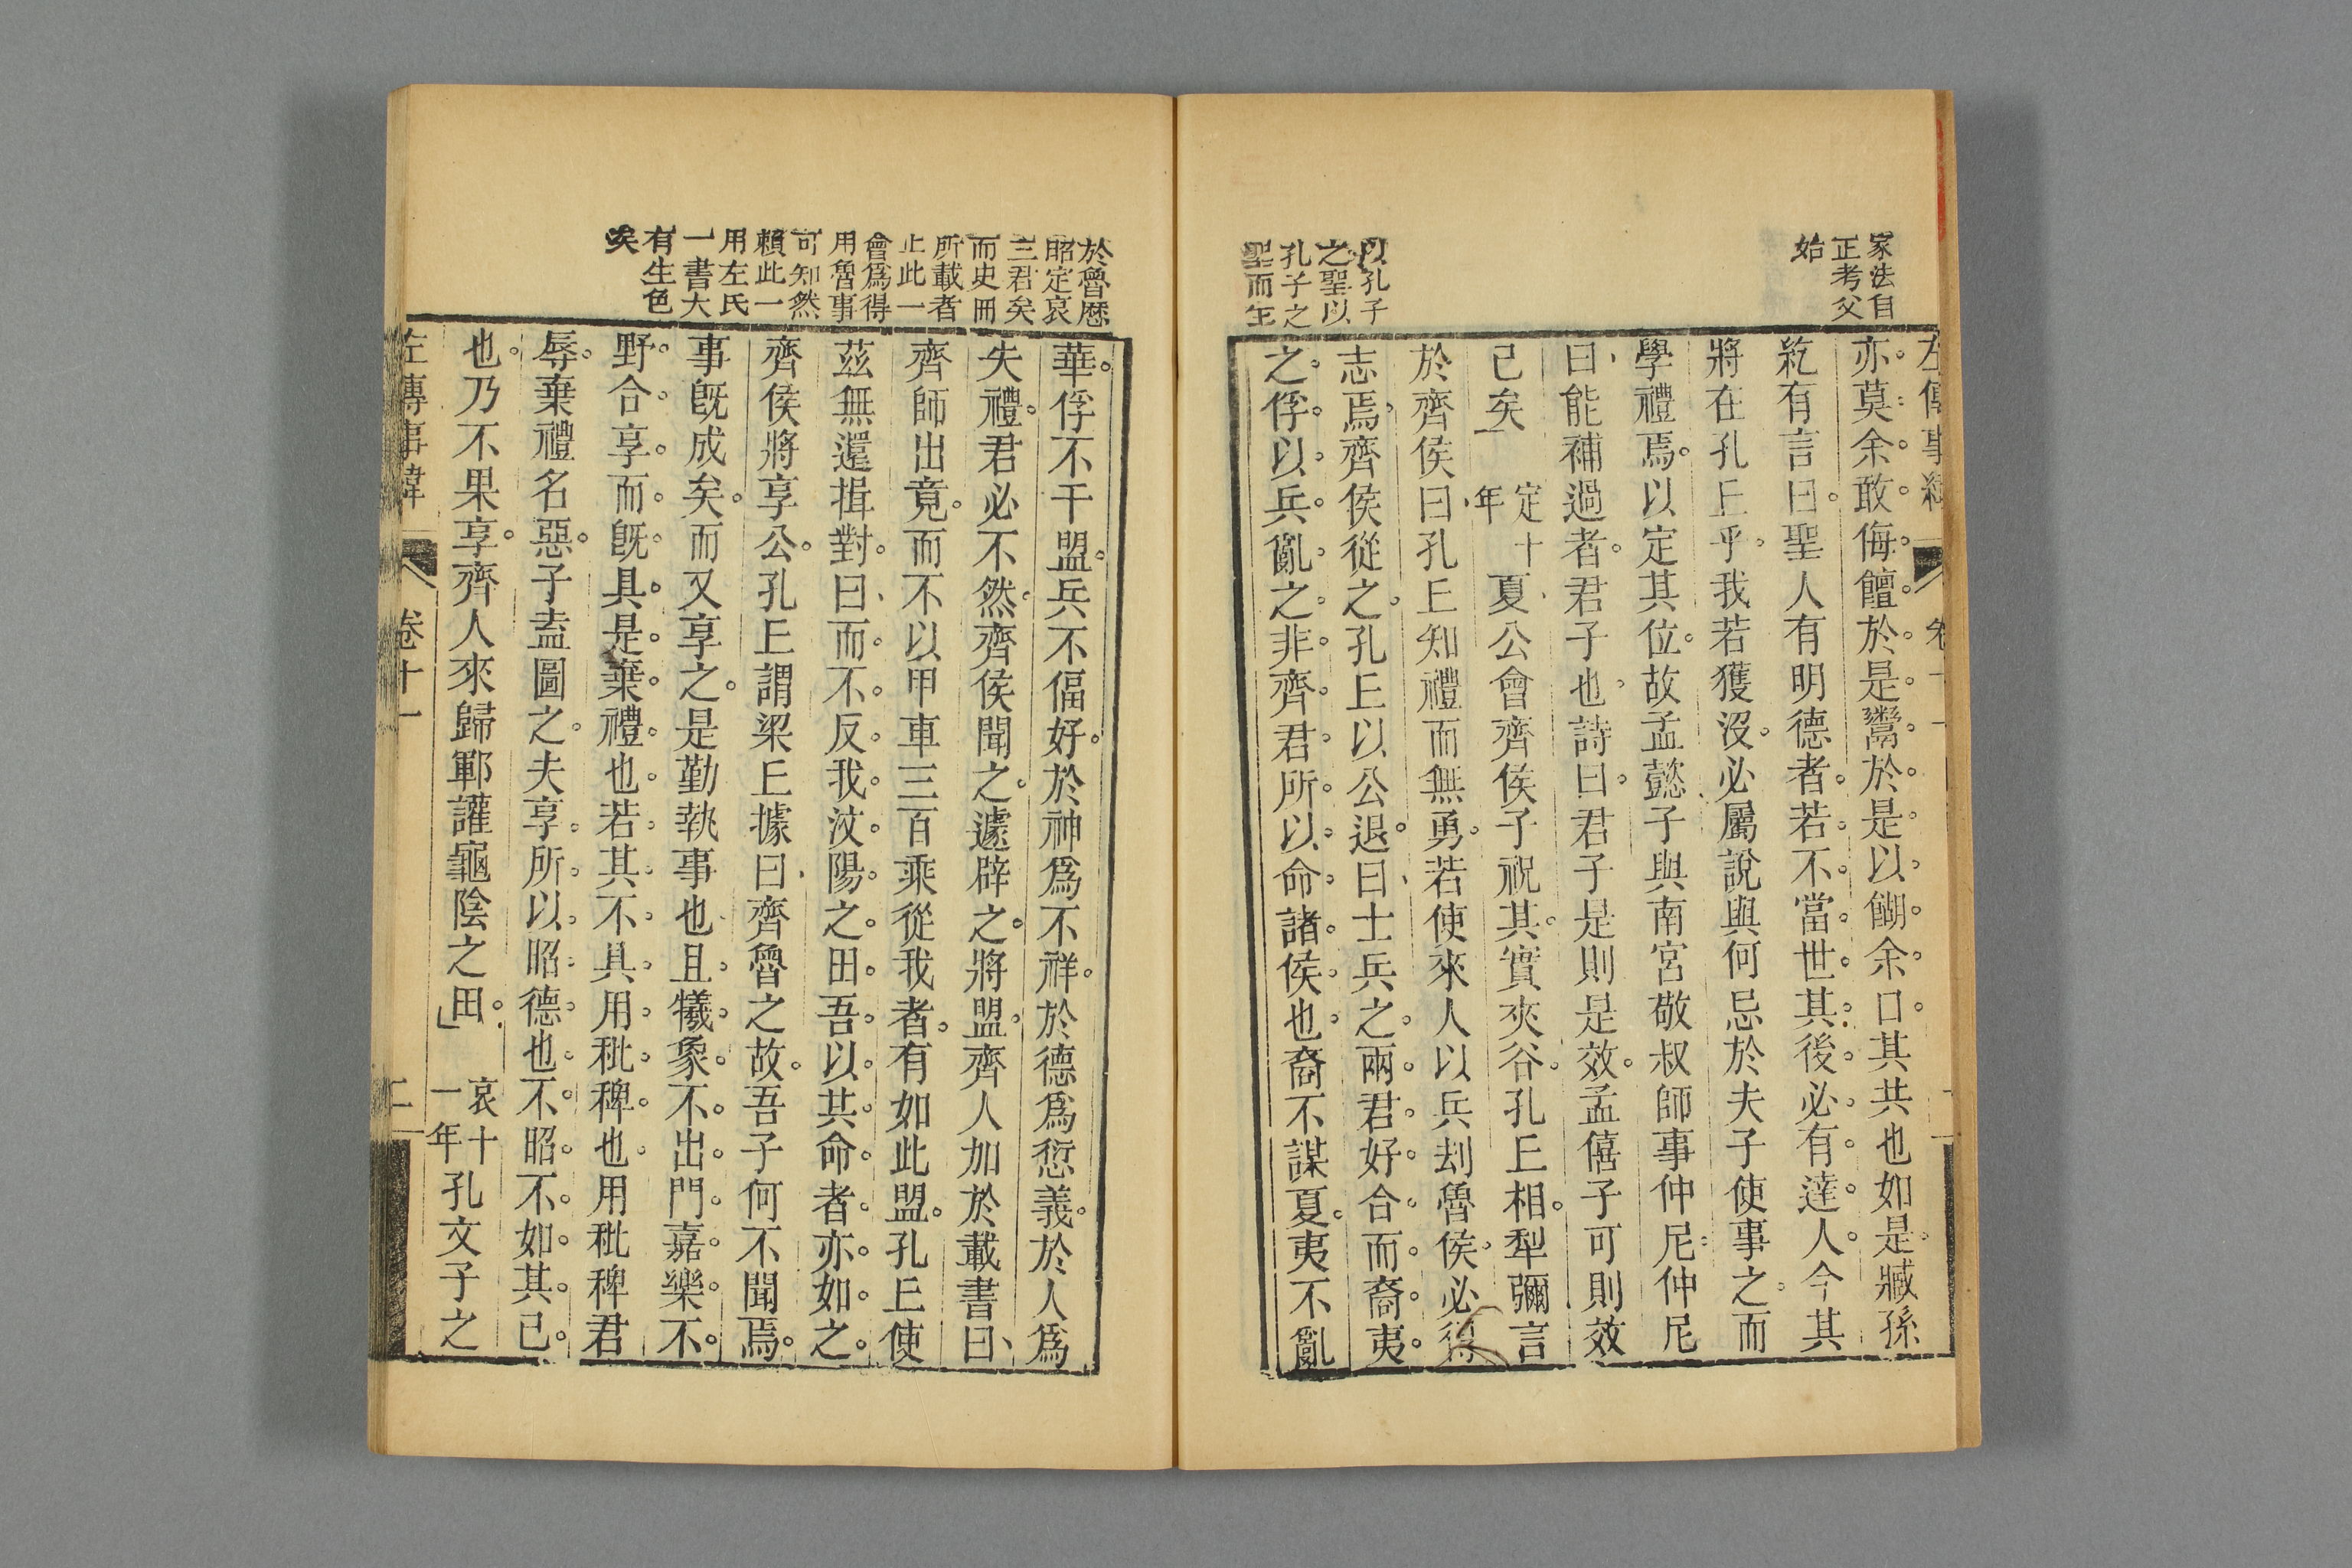 家法自
正考父
始
以孔子
之聖以
孔子之
聖而生
左傳事緯
亦莫余敢侮饘於是鬻於是以餬余口其共也如是臧孫
紇有言曰聖人有明德者若不當世其後必有達人今其
將在孔丘乎我若獲沒必屬說與何忌於夫子使事之而
學禮焉以定其位故孟懿子與南宮敬叔師事仲尼仲尼
曰能補過者君子也詩曰君子是則是效孟僖子可則效
已矣 定十年 夏公會齊侯于祝其實夾谷孔丘相犁彌言
於齊侯曰孔丘知禮而無勇若使來人以兵刦魯侯必得
志焉齊侯從之孔丘以公退曰士兵之兩君好合而裔夷
之俘以兵亂之非齊君所以命諸侯也裔不謀夏夷不亂
於魯歷
昭定哀
三君矣
而史冊
所載者
止此一
會爲得
用魯事
可知然
賴此一
用左氏
一書大
有生色
矣
華俘不干盟兵不偪好於神爲不祥於德爲愆義於人爲
失禮君必不然齊侯聞之遽辟之將盟齊人加於載書曰
齊師出竟而不以甲車三百乘從我者有如此盟孔丘使
茲無還揖對曰而不反我汶陽之田吾以共命者亦如之
齊侯將享公孔丘謂梁丘據曰齊魯之故吾子何不聞焉
事既成矣而又享之是勤執事也且犧象不出門嘉樂不
野合享而既具是棄禮也若其不具用秕稗也用秕稗君
辱棄禮名惡子盍圖之夫享所以昭德也不昭不如其已
也乃不果享齊人來歸鄆讙龜陰之田 哀十一年 孔文子之
左傳事緯 卷十一 二